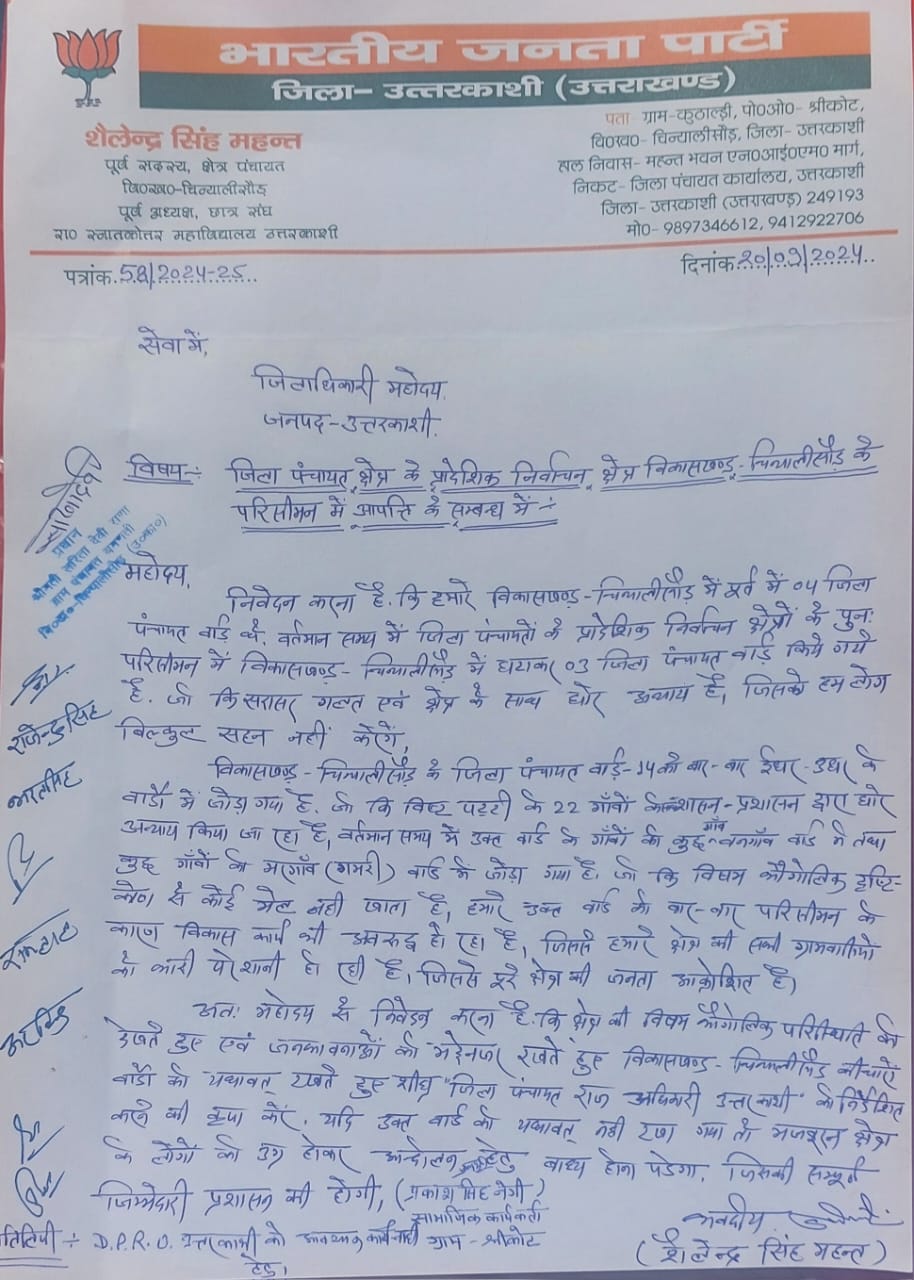 भारतीय जनता पार्टी
जिला- उत्तरकाशी (उत्तराखण्ड)
शैलेन्द्र सिंह महन्त
पूर्व सदस्य, क्षेत्र पंचायत
वि०ख०-चिन्यालीसौड़
पूर्व अध्यक्ष, छात्र संघ
रा० स्नातकोत्तर महाविद्यालय उत्तरकाशी
पता- ग्राम-कुठाल्ड़ी, पो०ओ०- श्रीकोट,
वि०ख०- चिन्यालीसौड़, जिला- उत्तरकाशी
हाल निवास- महन्त भवन एन०आई०एम० मार्ग,
निकट- जिला पंचायत कार्यालय, उत्तरकाशी
जिला- उत्तरकाशी (उत्तराखण्ड) 249193
मो०- 9897346612, 9412922706
पत्रांक.58/2024-25
दिनांक.20/09/2024
सेवा में,
जिलाधिकारी महोदय,
जनपद-उत्तरकाशी.
विषय:- जिला पंचायत क्षेत्र के प्रादेशिक निर्वाचन क्षेत्र विकासखण्ड-चिन्यालीसौड़ के
परिसीमन में आपत्ति के सम्बन्ध में :-
महोदय,
निवेदन करना है. कि हमारे विकासखण्ड-चिन्यालीसौड़ में पूर्व में 04 जिला
पंचायत वार्ड थे. वर्तमान समय में जिला पंचायतों के प्रादेशिक निर्वाचन क्षेत्रों के पुनः
परिसीमन में विकासखण्ड- चिन्यालीसौड़ में घटाकर 03 जिला पंचायत वार्ड किये गये
है. जो कि सरासर गलत एवं क्षेत्र के साथ घोर अन्याय है, जिसको हम लोग
बिल्कुल सहन नहीं करेंगे,
विकासखण्ड- चिन्यालीसौड़ के जिला पंचायत वार्ड-14 को बार-बार ईधर-उधर के
वार्डों में जोड़ा गया है. जो कि बिष्ट पट्टी के 22 गाँवों शासन-प्रशासन द्वारा घोर
अन्याय किया जा रहा है, वर्तमान समय में उक्त वार्ड के गांवों को कुछ गाँव बनगाँव वार्ड में तथा
कुछ गाँवों को भगाँव (गमरी) वार्ड में जोड़ा गया है. जो कि विषम भौगोलिक दृष्टि-
कोण से कोई मेल नही खाता है, हमारे उक्त वार्ड को बार-बार परिसीमन के
कारण विकास कार्य भी अवरुद्ध हो रहा है, जिससे हमारे क्षेत्र की सभी ग्रामवासियों
को भारी परेशानी हो रही है, जिससे पूरे क्षेत्र की जनता आक्रोशित है।
अतः महोदय से निवेदन करना है. कि क्षेत्र की विषम भौगोलिक परिस्थिति को
देखते हुए एवं जनभावनाओं को मद्देनजर रखते हुए विकासखण्ड- चिन्यालीसौड़ की चारों
वार्डों को यथावत् रखते हुए शीघ्र "जिला पंचायत राज अधिकारी उत्तरकाशी" को निर्देशित
करने की कृपा करें. यदि उक्त वार्ड को यथावत् नही रखा गया तो मजबूरन क्षेत्र
के लोगों को उग्र होकर आन्दोलन हेतु बाध्य होना पडेगा. जिसकी सम्पूर्ण
जिम्मेदारी प्रशासन की होगी, (प्रकाश सिंह नेगी)
सामाजिक कार्यकर्ता
ग्राम - श्रीकोट
भवदीय
(शैलेन्द्र सिंह महन्त)
तिलिपी :- D.P.R.O. उत्तरकाशी को आवश्यक कार्यवाही
हेतु,
प्रधान
श्रीमती सरिता देवी राणा
राजेन्द्र सिंह